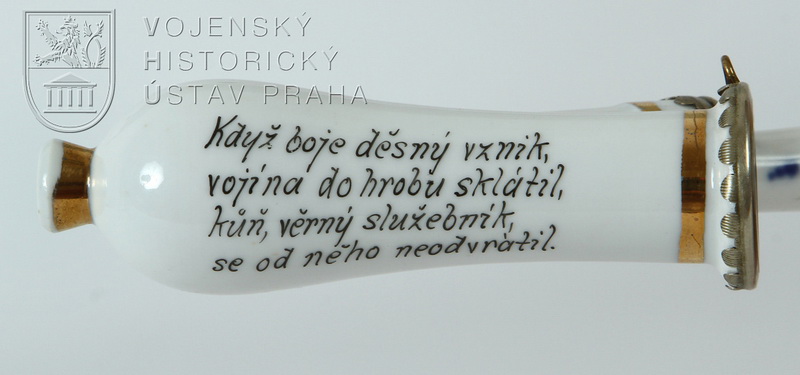 VOJENSKÝ
HISTORICKÝ
ÚSTAV PRAHA
Když boje děsný vznik,
vojína do hrobu sklátil,
kůň, věrný služebník,
se od něho neodvrátil.